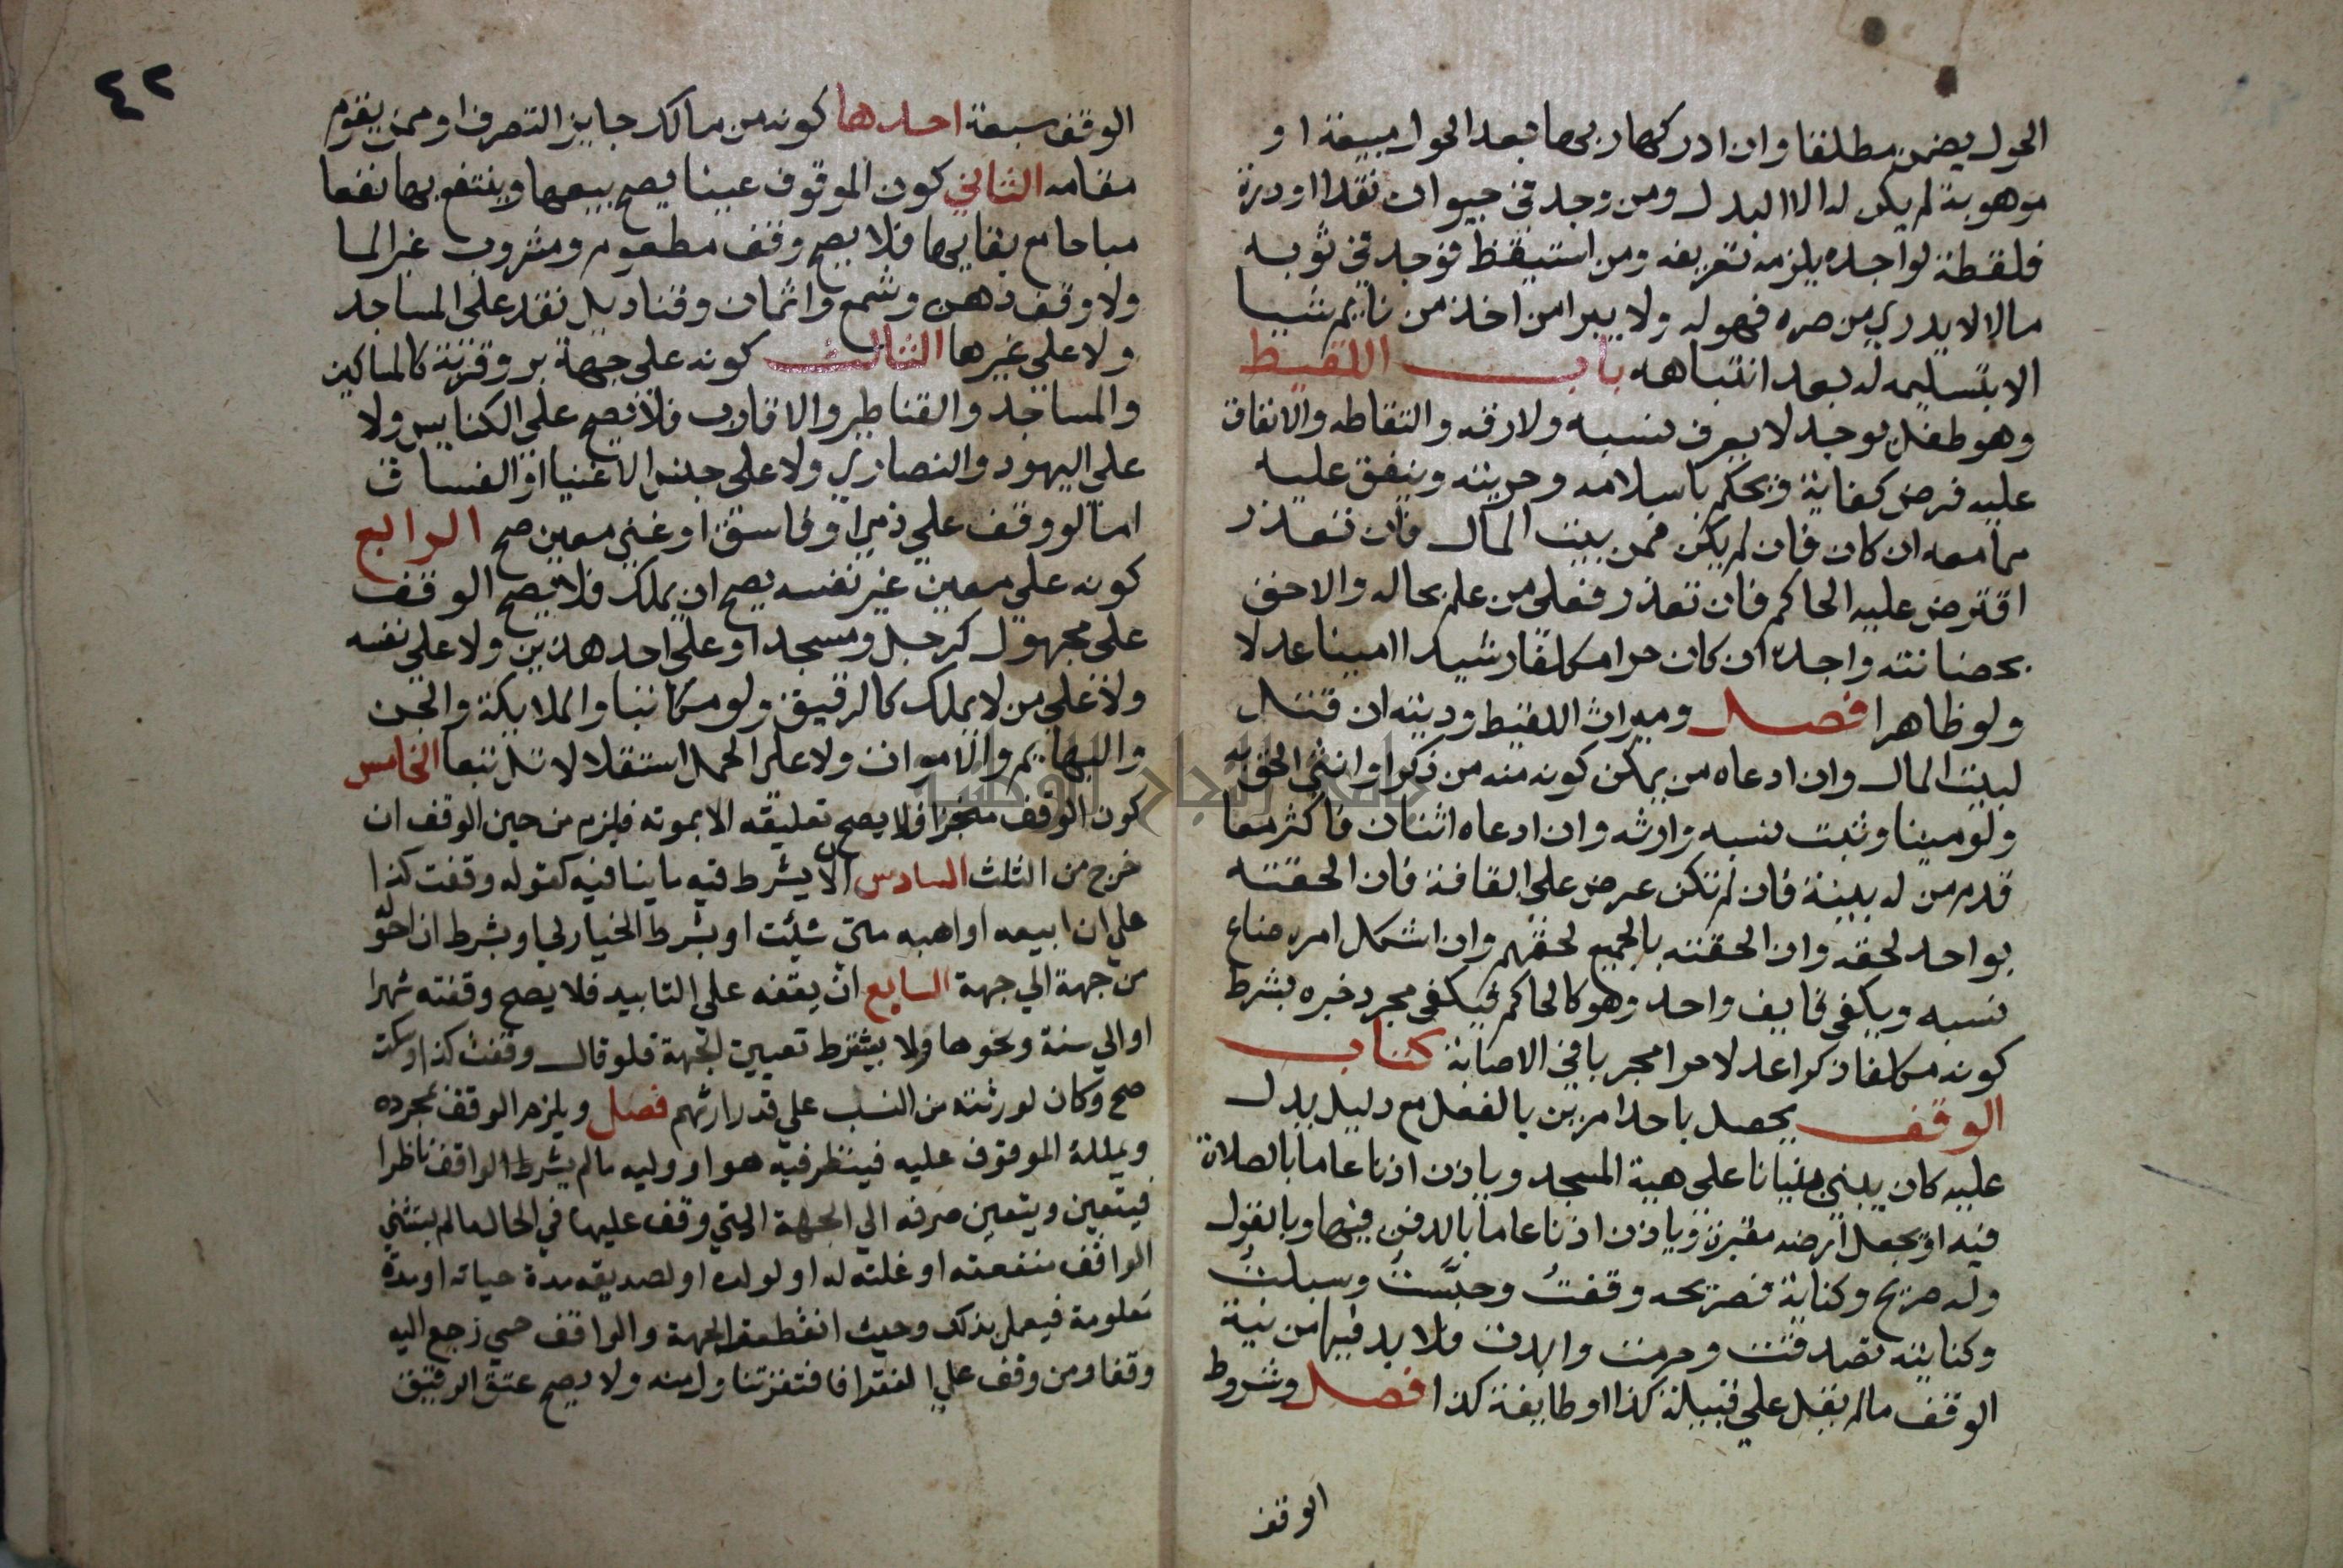 الحول يضمن مطلقا وان ادركها ربها بعد الحول مبيعة او
موهوبة لم يكن له الا البدل ومن وجد في حيوان نقدا او درة
فلقطة لواجده يلزمه تعريفه ومن استيقظ فوجد في ثوبه
مالا لا يدري من صره فهو له ولا يبرا من اخذ من نايم شيا
الا بتسليمه له بعد انتباهه باب اللقيط
وهو طفل يوجد لا يعرف نسبه ولا رقه والتقاطه والانفاق
عليه فرض كفاية ويحكم باسلامه وحريته وينفق عليه
مما معه ان كان فان لم يكن فمن بيت المال فان تعذر
اقترض عليه الحاكم فان تعذر فعلى من علم بحاله والاحق
بحضانته واجده ان كان حرا مكلفا رشيدا امينا عدلا
ولو ظاهرا فصل وميراث اللقيط وديته ان قتل
لبيت المال وان ادعاه من يمكن كونه منه من ذكر او انثى الحق به
ولو ميتا وثبت نسبه وارثه وان ادعاه اثنان فاكثر معا
قدم من له بينة فان لم تكن عرض على القافة فان الحقته
بواحد لحقه وان الحقته بالجميع لحقهم وان اشكل امره ضاع
نسبه ويكفي قايف واحد وهو كالحاكم فيكفي مجرد خبره بشرط
كونه مكلفا ذكرا عدلا حرا مجربا في الاصابة كتاب
الوقف يحصل باحد امرين بالفعل مع دليل يدل
عليه كان يبني بنيانا على هية المسجد وياذن اذنا عاما بالصلاة
فيه او يجعل ارضه مقبرة وياذن اذنا عاما بالدفن فيها وبالقول
وله صريح وكناية فصريحه وقفتُ وحبَّستُ وسبلتُ
وكنايته تصدقت وحرمت وابدت فلا بد فيها من نية
الوقف مالم يقل على قبيلة كذا او طايفة كذا فصل وشروط
الوقف
٤٢
الوقف سبعة احدها كونه من مالك جايز التصرف او ممن يقوم
مقامه الثاني كون الموقوف عينا يصح بيعها وينتفع بها نفعا
مباحا مع بقايها فلا يصح وقف مطعوم ومشروب غير الما
ولا وقف دهن وشمع واثمان وقناديل نقد على المساجد
ولا على غيرها الثالث كونه على جهة بر وقربة كالمساكين
والمساجد والقناطر والاقارب فلا يصح على الكنايس ولا
على اليهود والنصارى ولا على جنس الاغنيا او الفساق
اما لو وقف على ذمي او فاسق او غني معين صح الرابع
كونه على معين غير نفسه يصح ان يملك فلا يصح الوقف
على مجهول كرجل ومسجد او على احد هذين ولا على نفسه
ولا على من لا يملك كالرقيق ولو مكاتبا والملايكة والجن
والبهايم والاموات ولا على الحمل استقلالا بل تبعا الخامس
كون الوقف منجزا فلا يصح تعليقه الا بموته فيلزم من حين الوقف ان
خرج من الثلث السادس ان لا يشرط فيه ما ينافيه كقوله وقفت كذا
على ان ابيعه او اهبه متى شئت او بشرط الخيار لي او بشرط ان احوله
من جهة الي جهة السابع ان يقفه على التابيد فلا يصح وقفته شهرا
او الي سنة ونحوها ولا يشترط تعيين الجهة فلو قال وقفت كذا وسكت
صح وكان لورثته من النسب علي قدر ارثهم فصل ويلزم الوقف بمجرده
ويملكه الموقوف عليه فينظر فيه هو او وليه مالم يشرط الواقف ناظرا
فيتعين ويتعين صرفه الي الجهة التي وقف عليها في الحال مالم يستثني
الواقف منفعته او غلته له او لولده او لصديقه مدة حياته او مدة
معلومة فيعمل بذلك وحيث انقطعت الجهة والواقف حي رجع اليه
وقفا ومن وقف علي الفقرا فافتقر تناول منه ولا يصح عتق الرقيق